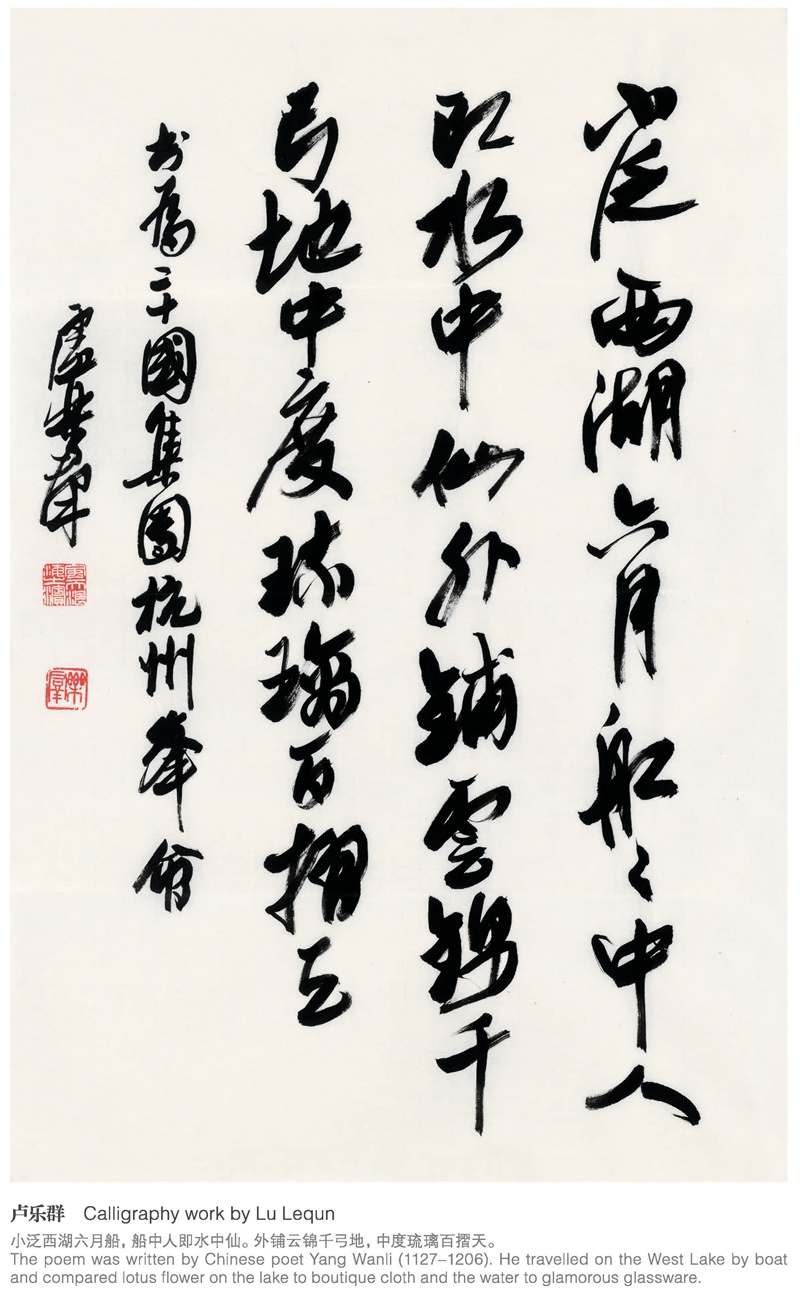 小泛西湖六月船々中人
即水中仙外鋪雲錦千
弓地中度琉璃百摺天
书為二十國集團杭州峯會
盧樂群
卢乐群 Calligraphy work by Lu Lequn
小泛西湖六月船，船中人即水中仙。外铺云锦千弓地，中度琉璃百摺天。
The poem was written by Chinese poet Yang Wanli (1127–1206). He travelled on the West Lake by boat
and compared lotus flower on the lake to boutique cloth and the water to glamorous glassware.